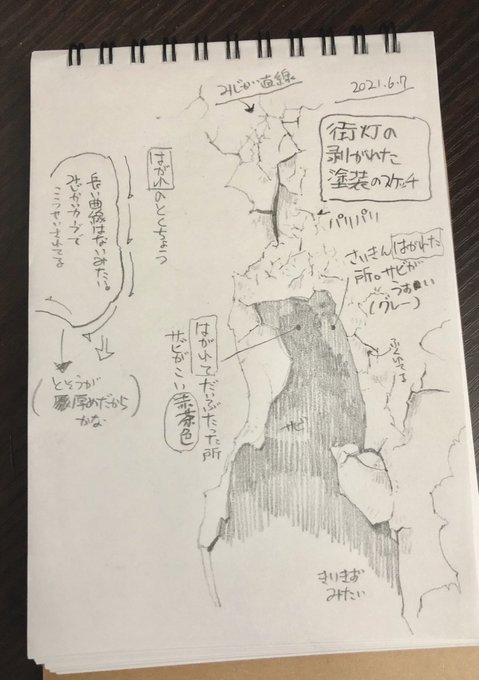 みじかい直線
2021.6.7
街灯の
剥がれた
塗装のスケッチ
パリパリ
さいきんはがれた
所。サビが
うすい
(グレー)
はがれのとくちょう
長い曲線はないみたい。
みじかいカーブで
こうせいされてる
(とそうが
厚めだから
かな)
はがれてだいぶたった所
サビがこい赤茶色
サビ
ういてる